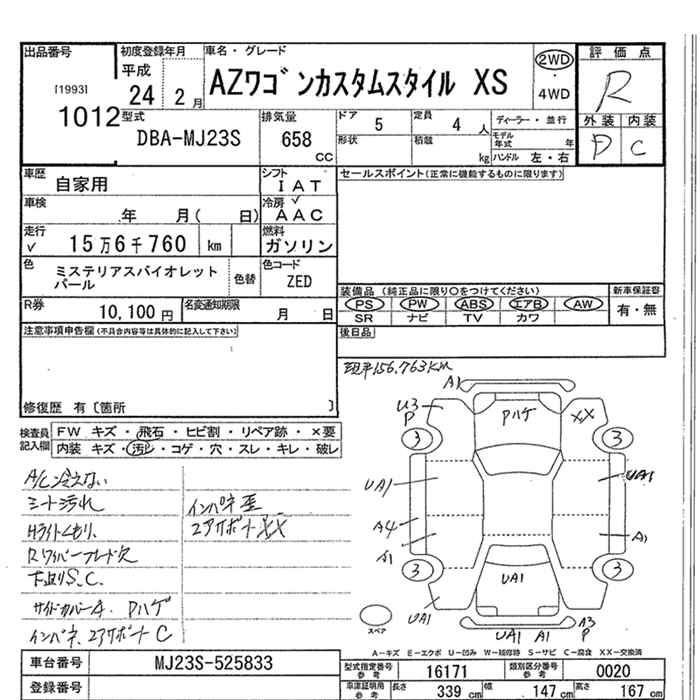 出品番号 初度登録年月 車名・グレード 評価点
[1993] 平成 AZワゴンカスタムスタイル XS 2WD R
1012 24 2月 4WD
型式 排気量 ドア 5 定員 4人 ディーラー・並行 外装 内装
DBA-MJ23S 658 CC 形状 積載 kg モデル年式 年 ハンドル 左・右 D C
車歴 自家用 シフト IAT セールスポイント(正常に機能するものに限ります)
車検 年 月( 日) 冷房 AAC
走行 15万6千760 km 燃料 ガソリン
色 ミステリアスバイオレット 色替 色コード
パール ZED
装備品 (純正品に限り○をつけてください) 新車保証書
R券 10,100円 名変通知期限 月 日 PS PW ABS エアB AW 有・無
SR ナビ TV カワ
注意事項申告欄(不具合内容等は具体的に記入して下さい) 後日品
現車156,763km
修復歴 有〔箇所 〕
検査員記入欄 FW キズ・飛石・ヒビ割・リペア跡・×要
内装 キズ・汚レ・コゲ・穴・スレ・キレ・破レ
A/C冷えない
シート汚れ インパネ歪
Hライトくもり、 コアサポートXX
Rワイパーブレード欠
下廻りS.C.
サイドカバーA. Pハゲ
インパネ、コアサポートC
A1
U3
P
Pハゲ
XX
3 3
UA1 UA1
A4
A1 A1
3 3
UA1
UA1
UA1 A1
A3
P
スペア
A-キズ E-エクボ U-凹み W-補修跡 S-サビ C-腐食 XX-交換済
車台番号 MJ23S-525833 型式指定番号 参考 16171 類別区分番号 参考 0020
登録番号 車庫証明用 参考 長さ 339 cm 幅 147 cm 高さ 167 cm